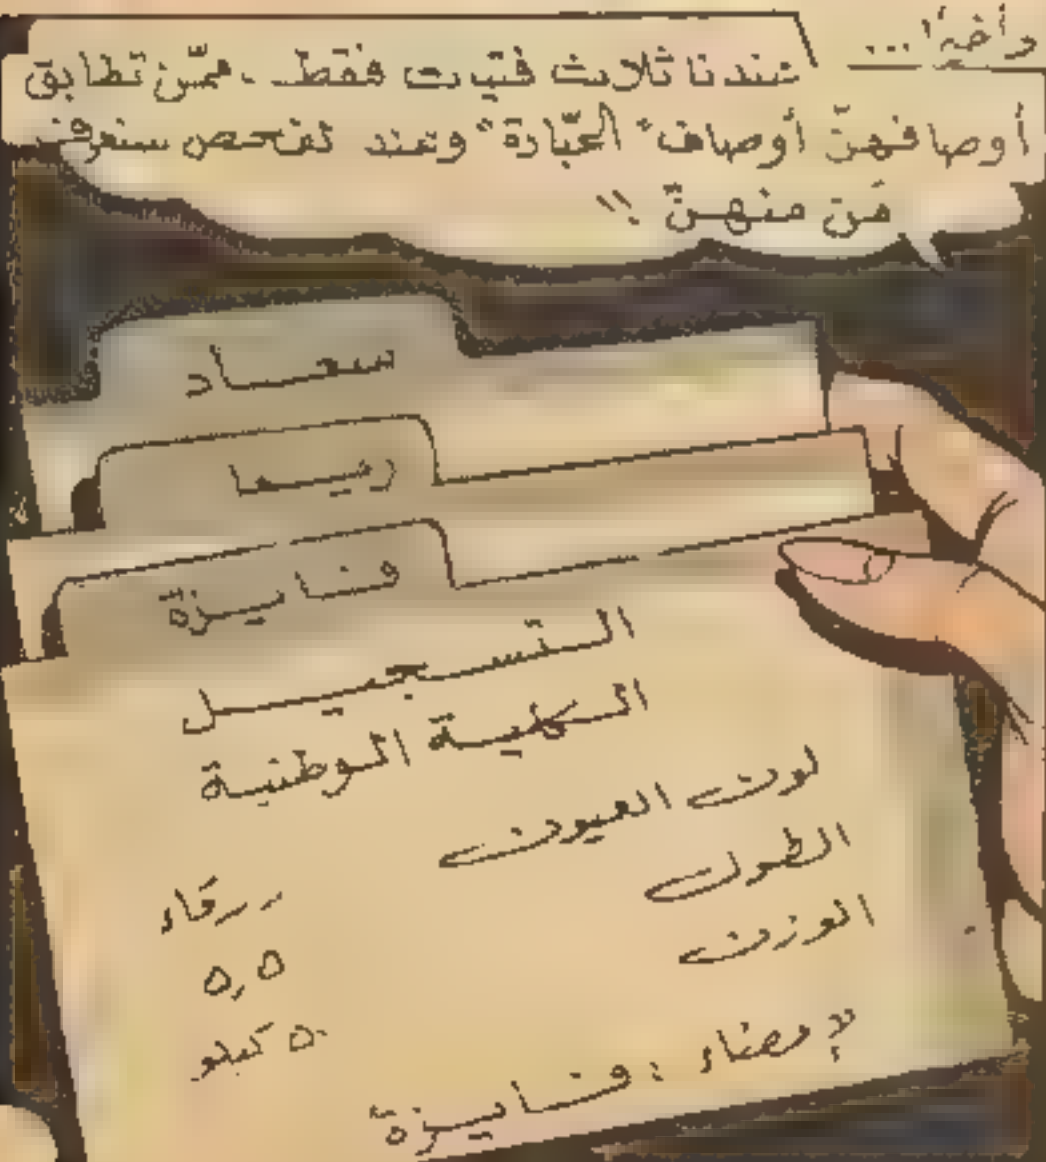 وأخيرًا...
عندنا ثلاث فتيات فقط، ممّن تطابق
أوصافهنّ أوصاف "الجبّارة" وعند الفحص سنعرف
مَن منهنّ !!
سعاد
ريما
فايزة
التسجيل
الكلية الوطنية
لون العيون زرقاء
الطول ٥,٥
الوزن ٥٠ كيلو
الإمضاء : فايزة